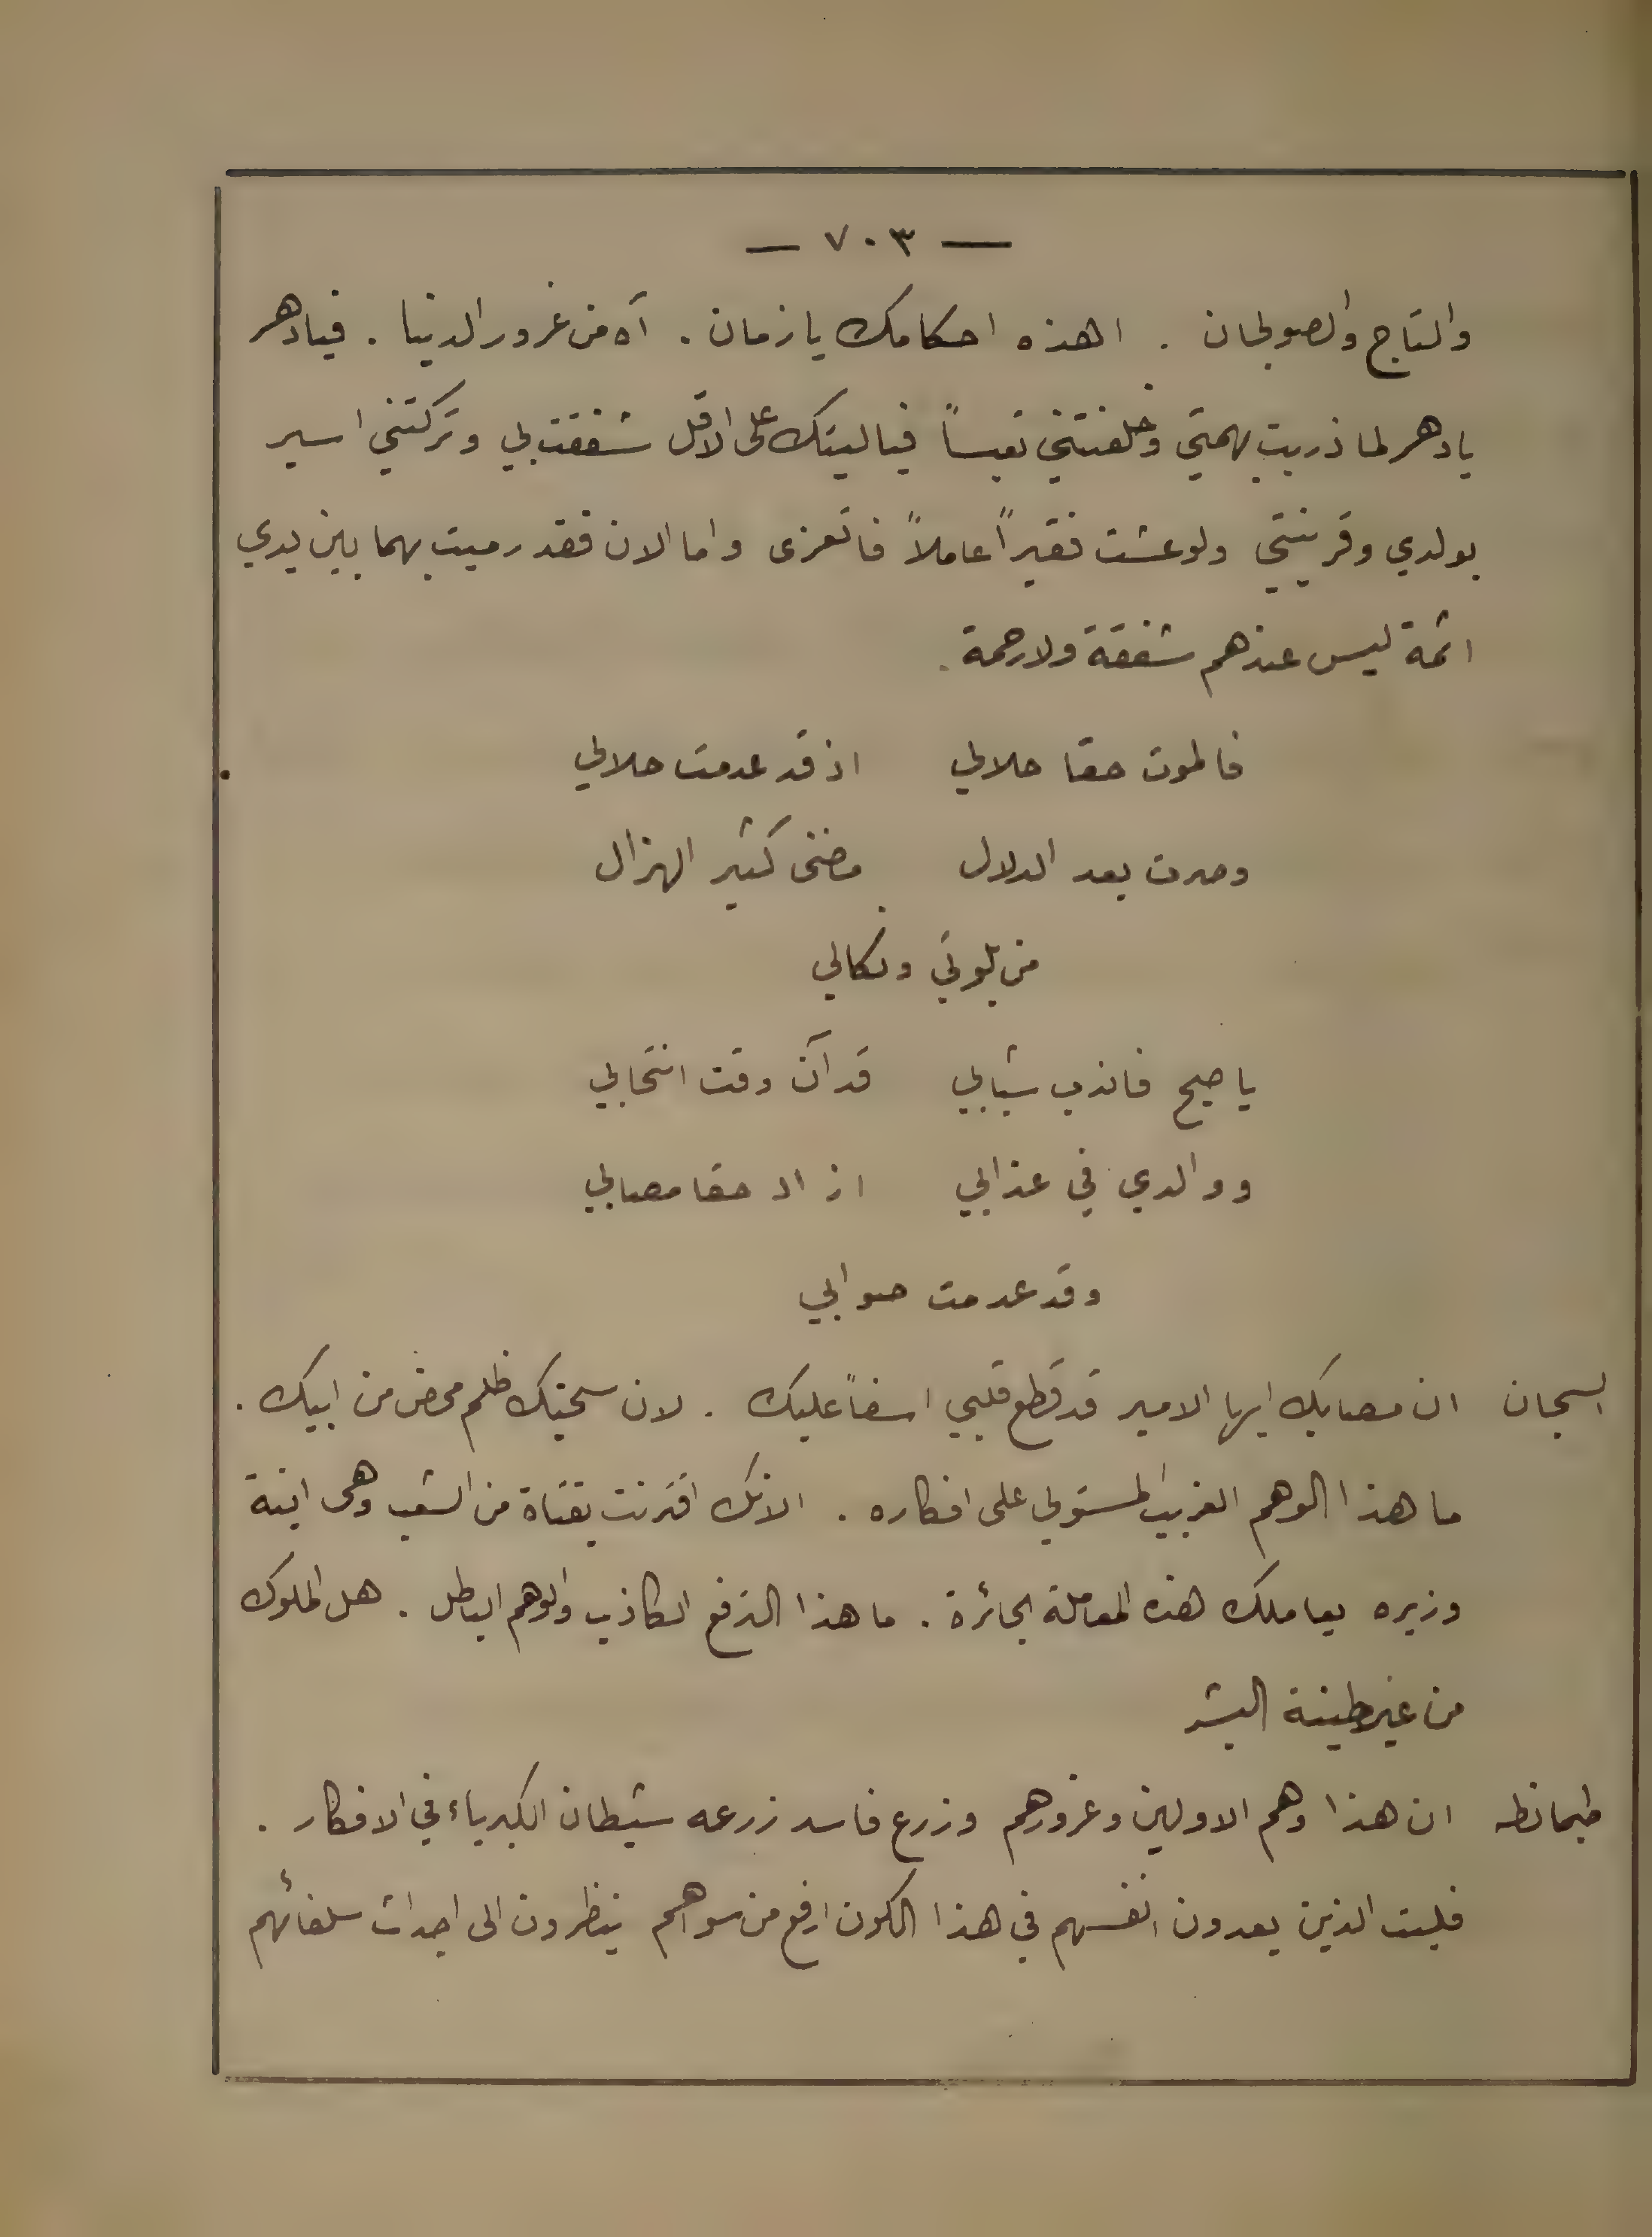 — ٧٠٣ —
والتاج والصولجان . اهذه احكامك يا زمان . آه من غرور الدنيا . فيا دهر
يا دهر لما ذريت بهمتي وخلفتني تعيساً فيا ليتك على الاقل شفقت بي وتركتني اسير
بولدي وقرينتي ولو عشت فقيراً عاملاً فاتعزى واما الان فقد رميت بهما بين يدي
ائمة ليس عندهم شفقة ولا رحمة .
فالموت حقا حلالي اذ قد عدمت حلالي
وصرت بعد الدلال مضنى كثير الهزال
من بلوتي ونكالي
يا صبح فاندب شبابي قد آن وقت انتحابي
ووالدي في عذابي ازاد حقا مصابي
وقد عدمت صوابي
السجان ان مصابك ايها الامير قد قطع قلبي اسفاً عليك . لان سجنك ظلم محض من ابيك .
ما هذا الوهم الغريب المستولي على افكاره . الانك اقترنت بفتاة من الشعب وهى ابنة
وزيره يعاملك هذه المعاملة الجائرة . ما هذا الترفع الكاذب والوهم الباطل . هل الملوك
من غير طينة البشر
طيمانطه ان هذا وهم الاولين وغرورهم وزرع فاسد زرعه شيطان الكبرياء في الافكار .
فليت الذين يعدون انفسهم في هذا الكون ارفع من سواهم ينظرون الى اجداث سلفائهم